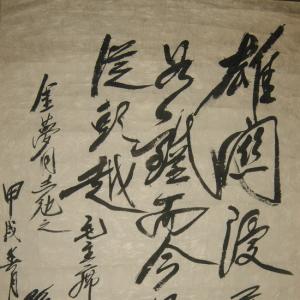 雄關漫
如鐵而今
從頭越 毛主席
金夢
之
甲戌春月